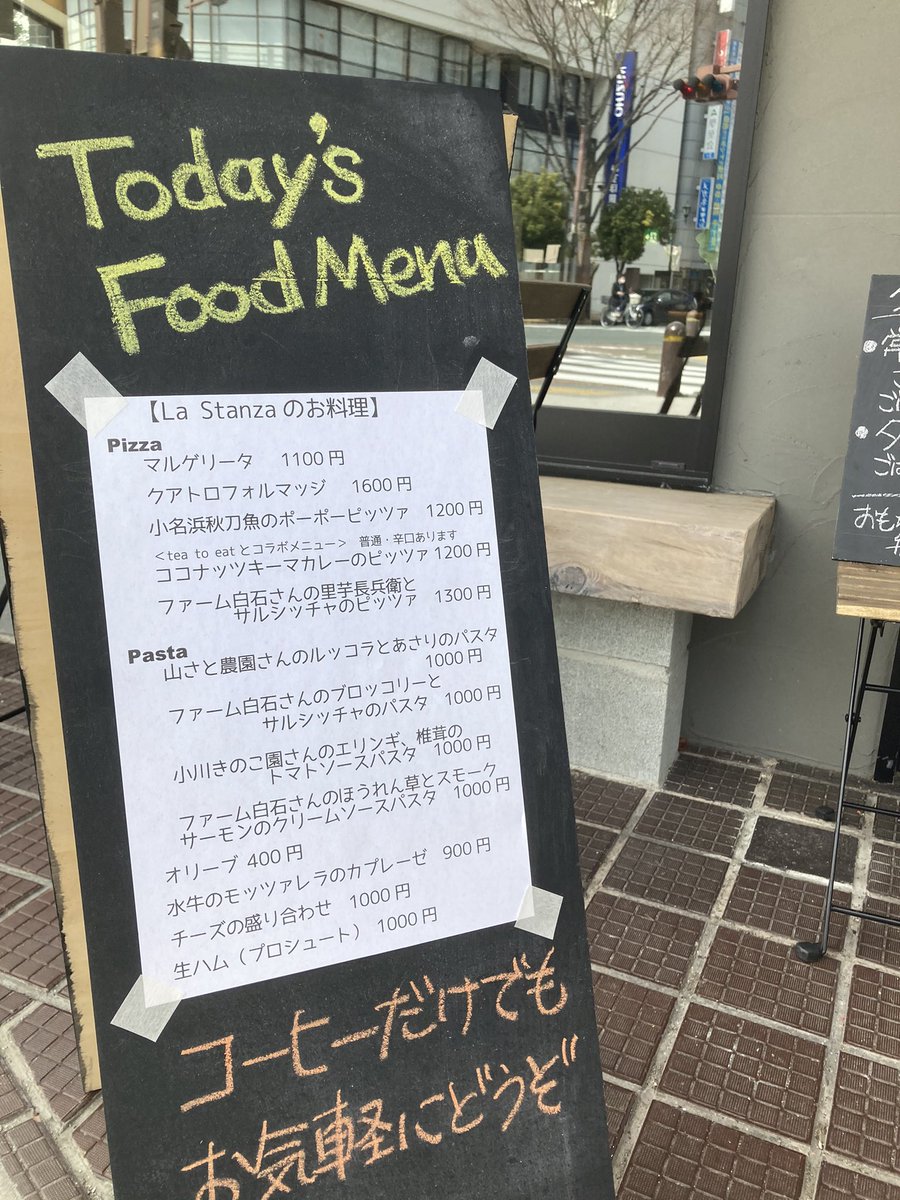 Today's
Food Menu
【La Stanzaのお料理】
Pizza
マルゲリータ 1100円
クアトロフォルマッジ 1600円
小名浜秋刀魚のポーポーピッツァ 1200円
<tea to eatとコラボメニュー> 普通・辛口あります
ココナッツキーマカレーのピッツァ 1200円
ファーム白石さんの里芋長兵衛と
サルシッチャのピッツァ 1300円
Pasta
山さと農園さんのルッコラとあさりのパスタ
1000円
ファーム白石さんのブロッコリーと
サルシッチャのパスタ 1000円
小川きのこ園さんのエリンギ、椎茸の
トマトソースパスタ 1000円
ファーム白石さんのほうれん草とスモーク
サーモンのクリームソースパスタ 1000円
オリーブ 400円
水牛のモッツァレラのカプレーゼ 900円
チーズの盛り合わせ 1000円
生ハム（プロシュート） 1000円
コーヒーだけでも
お気軽にどうぞ